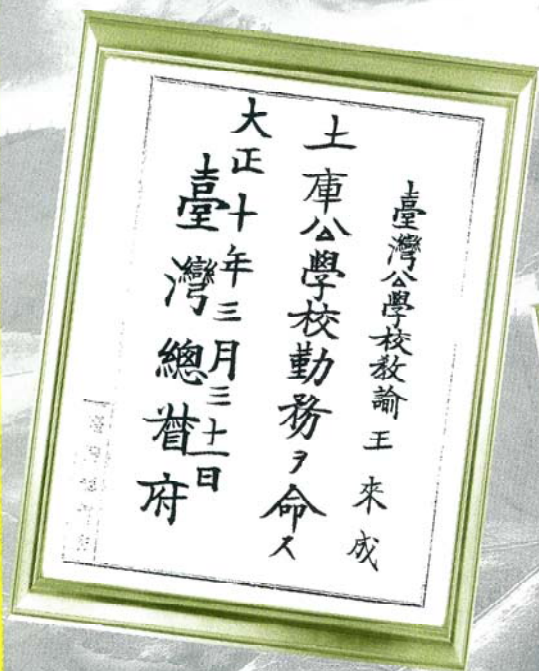 臺灣公學校教諭王來成
土庫公學校勤務ヲ命ス
大正十年三月三十一日
臺灣總督府